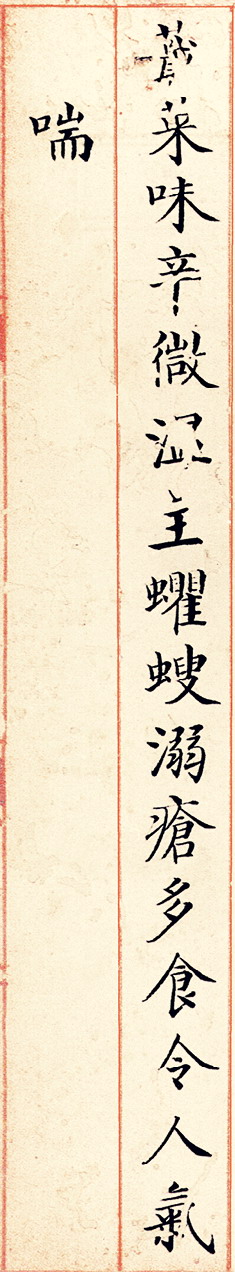 菜味辛微溫主蠷螋溺瘡多食令人氣
喘